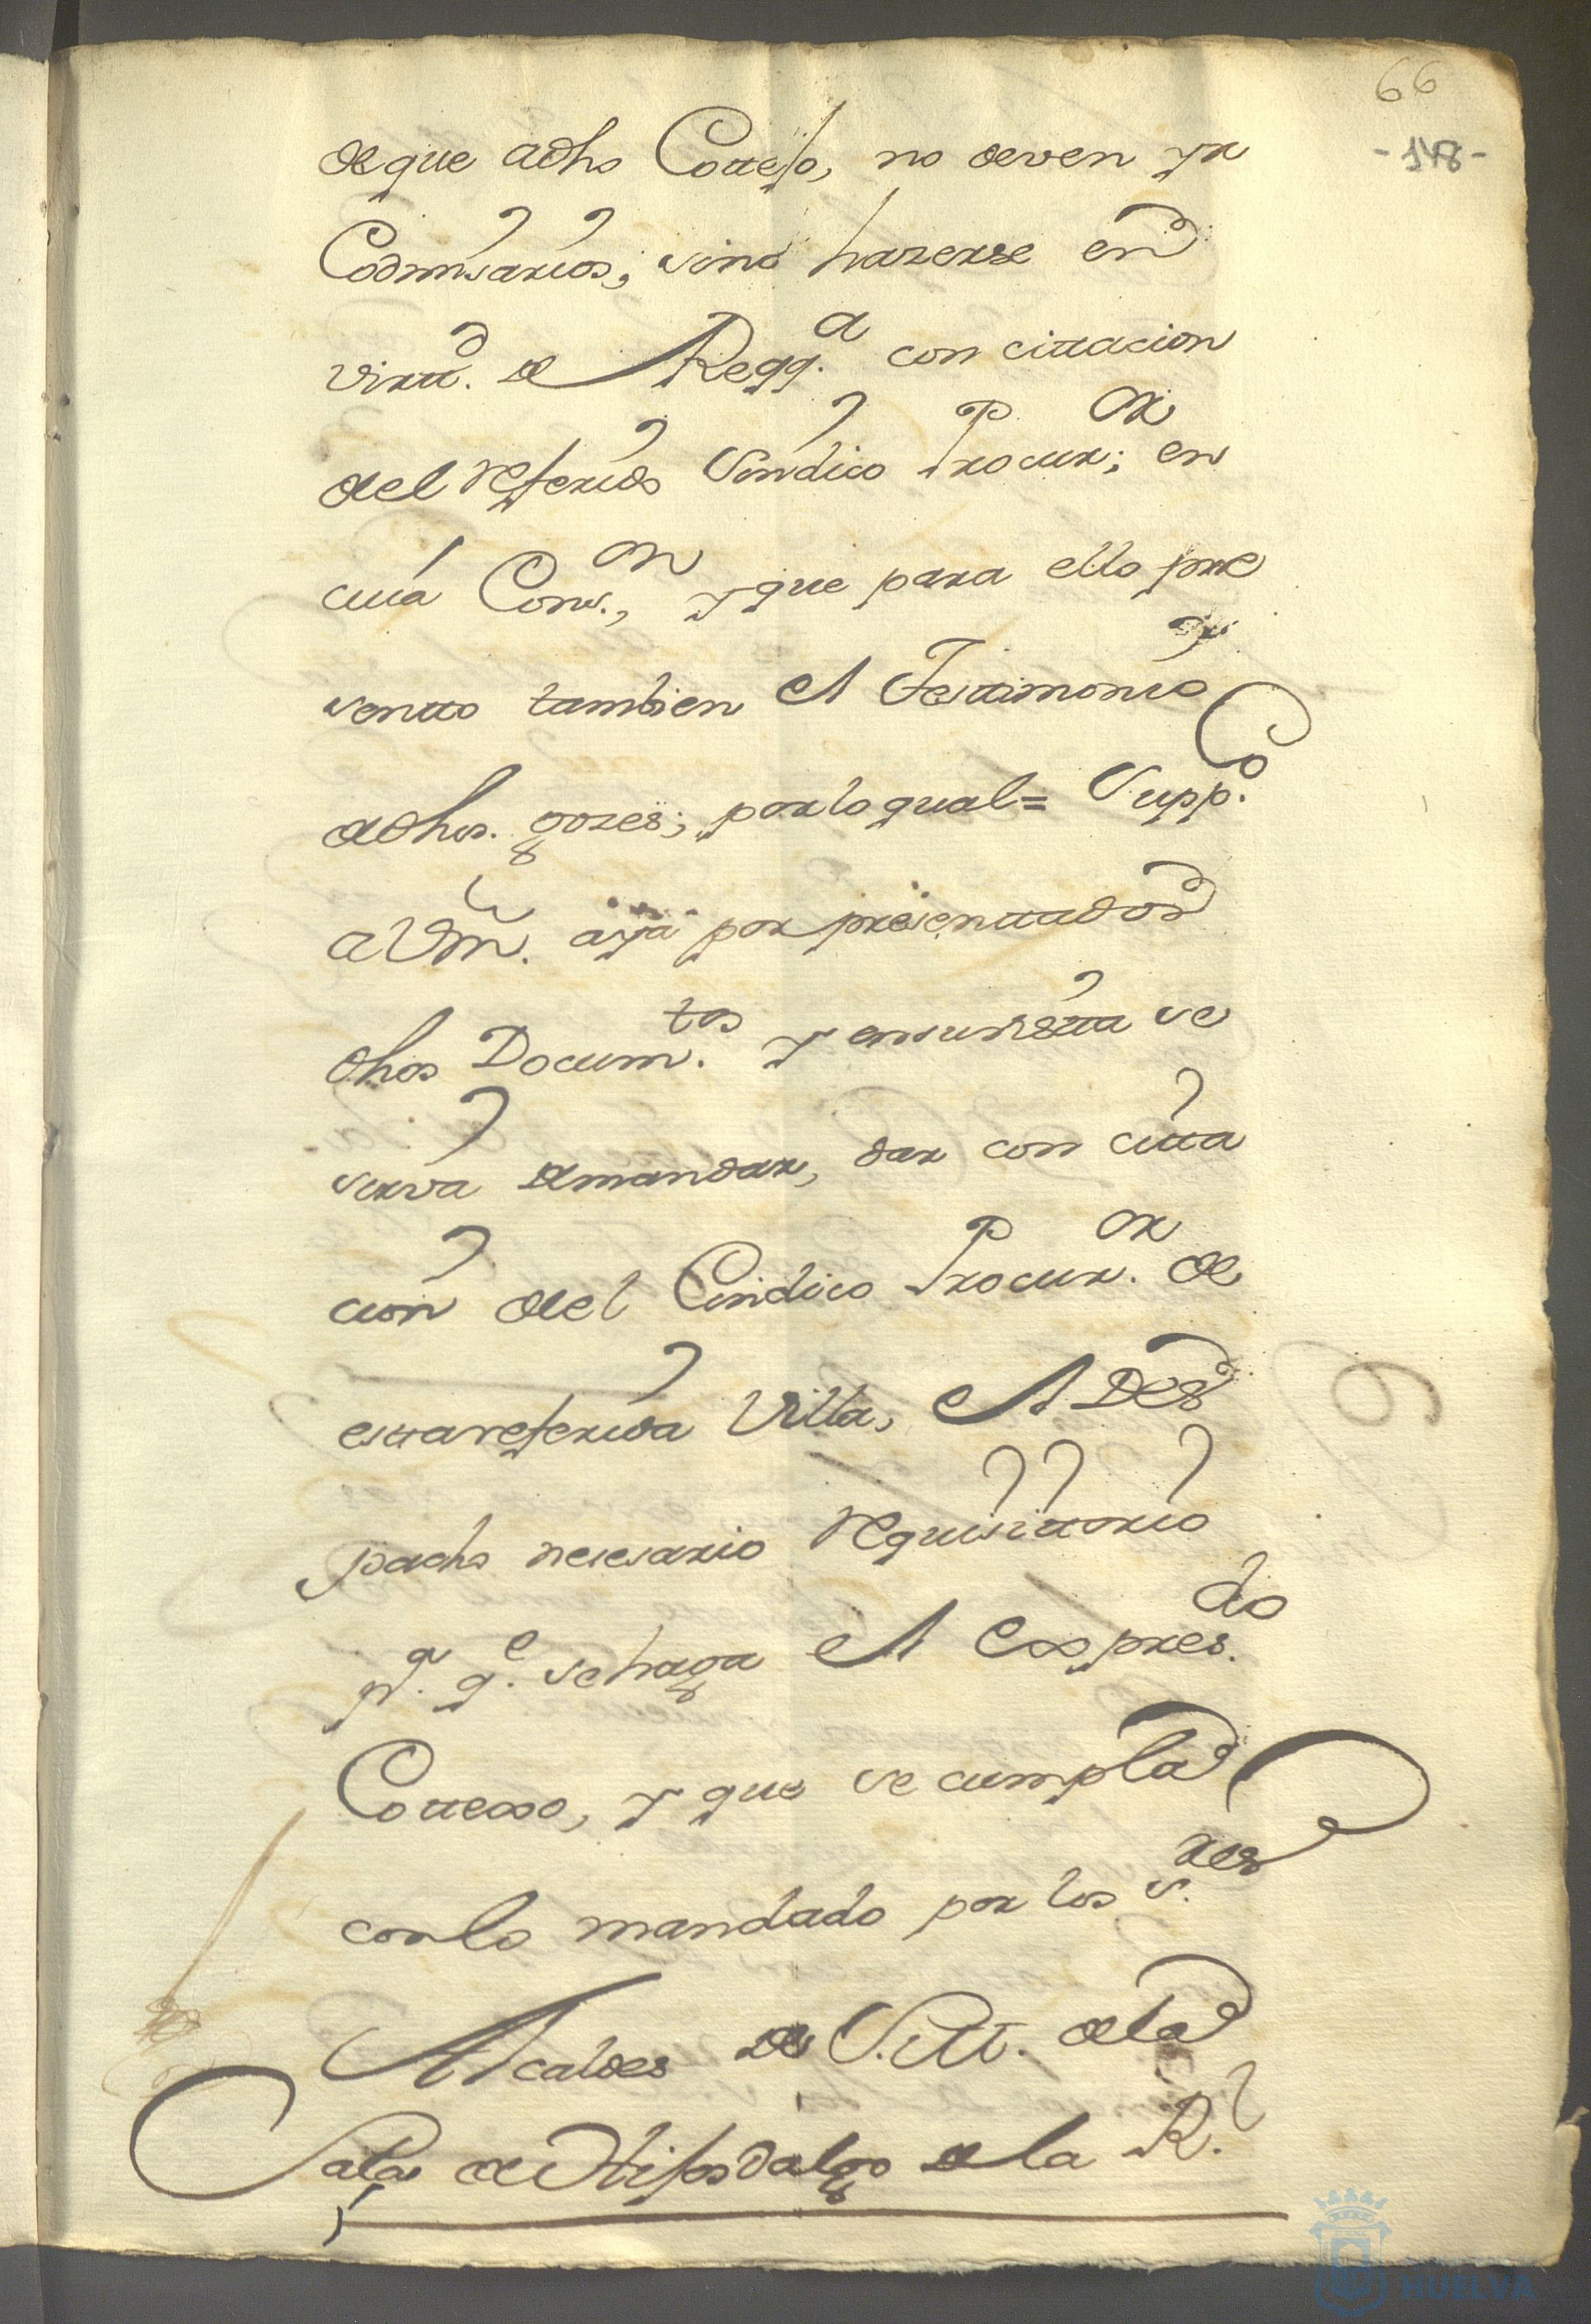 66
-148-
de que adho Cottejo, no deven yr
Comisarios; sino hazerse en
virtt.d de Reqq.a con cittacion
del referido Sindico Procur.or; en
cuia Conn.on, y que para ello pre
sentto tambien el Testtimonio
de dhos. gozes; por lo qual = Supp.co
a Vm. aya por presenttados
dhos Docum.tos y en su vistta se
sirva de mandar, dar con citta
cion del Cindico Procur.or de
estta referida Villa, el Des
pacho nesesario requisittorio
p.a q.e se haga el Expres.do
Cottexo, y que se cumpla
con lo mandado por los S.res
Alcaldes de S.M. de la
Sala de Hijosdalgo de la R.l
HUELVA